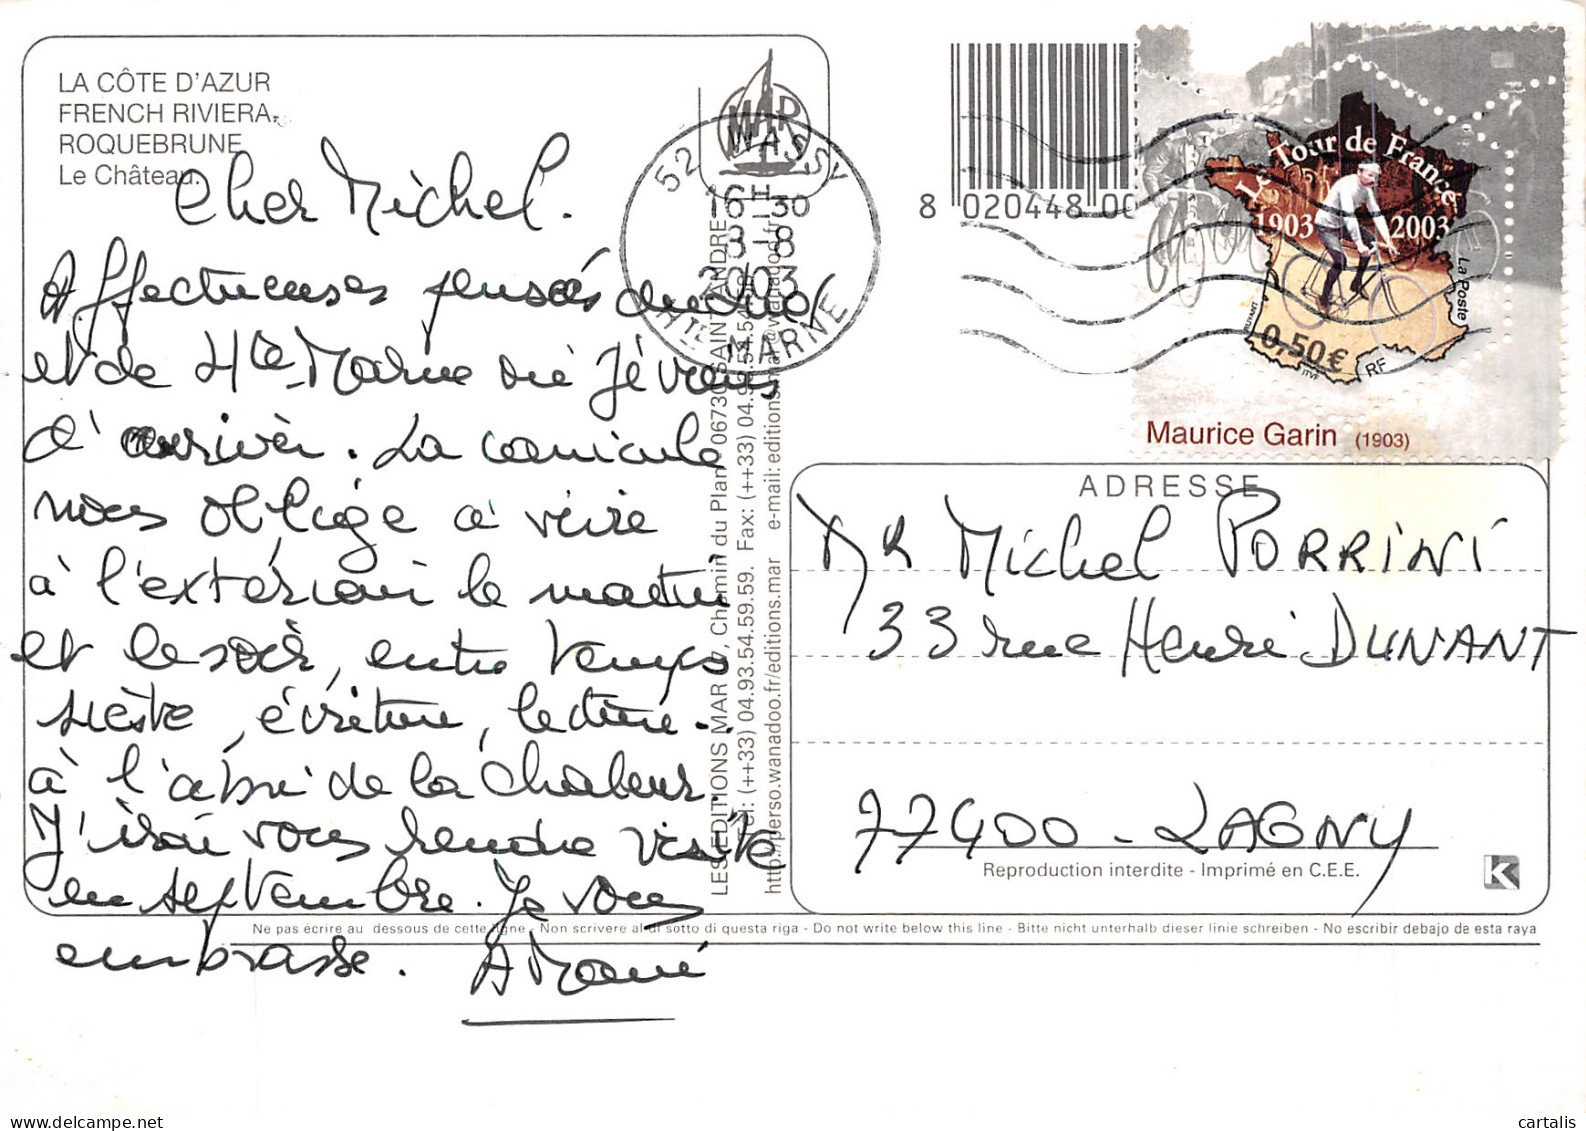 LA CÔTE D'AZUR
FRENCH RIVIERA
ROQUEBRUNE
Le Château.
Cher Michel.
Affectueuses pensées du sud
et de Hte Marne où je viens
d'arriver. La canicule
nous oblige à vivre
à l'extérieur le matin
et le soir, entre temps
sieste, écriture, lecture..
à l'abri de la chaleur.
J'irai vous rendre visite
en septembre. Je vous
embrasse.
MAR
52 WASSY
16H30
3-8
2003
HTE MARNE
LES EDITIONS MAR 7, Chemin du Plan 06730 SAINT ANDRE
Tel: (++33) 04.93.54.59.59. Fax: (++33) 04.93.54.54
http://perso.wanadoo.fr/editions.mar e-mail: editions.mar@wanadoo.fr
8 020448 00
Le Tour de France
1903 2003
La Poste
0,50€
RF
ITVF
Maurice Garin (1903)
ADRESSE
Mr Michel PORRINI
33 rue Henri DUNANT
77400 - LAGNY
Reproduction interdite - Imprimé en C.E.E.
K
Ne pas écrire au dessous de cette ligne - Non scrivere al di sotto di questa riga - Do not write below this line - Bitte nicht unterhalb dieser linie schreiben - No escribir debajo de esta raya
cartalis